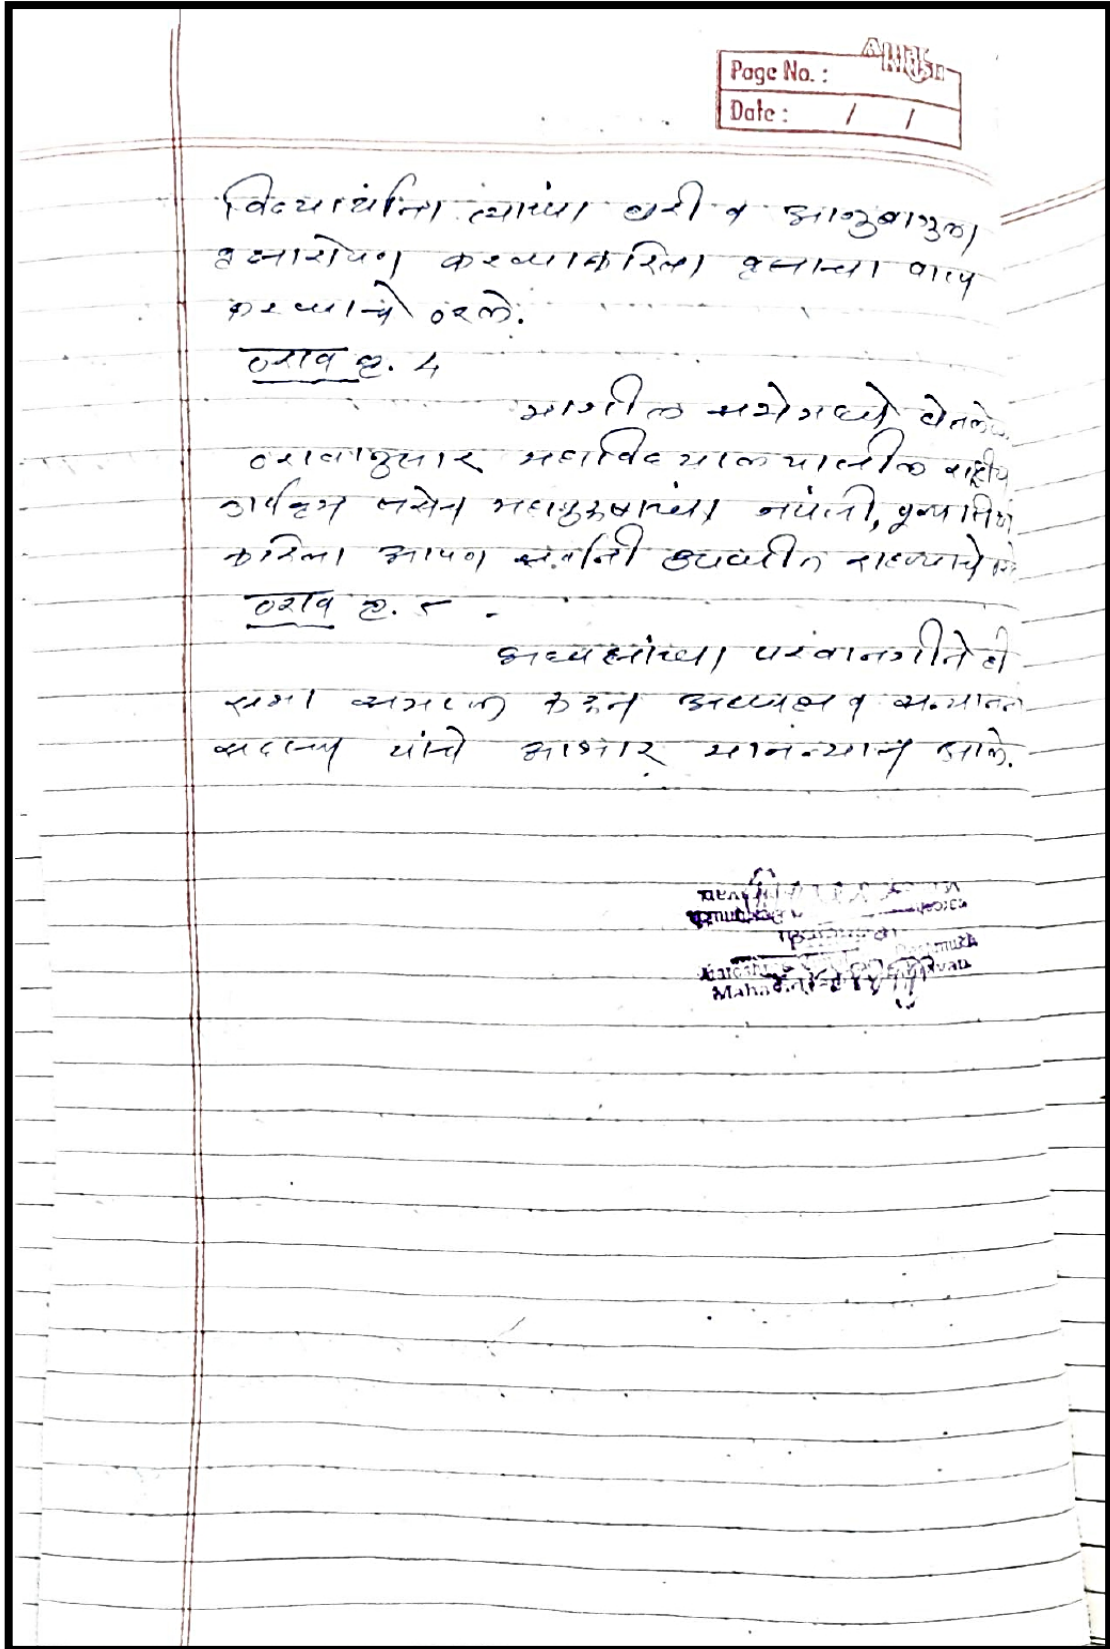 Page No. :
Date : / /
विद्यार्थ्यांना त्यांच्या घरी व आजुबाजुला
वृक्षारोपण करण्याकरिता वृक्षाच्या वाटप
करण्याचे ठरले.
ठराव क्र. 4
मागील सभेमध्ये घेतलेल्या
ठरावानुसार महाविद्यालयातील राष्ट्रीय
कार्यक्रम तसेच महापुरुषांच्या जयंती, पुण्यतिथी
करिता आपण सर्वांनी उपस्थीत राहण्याचे
ठराव क्र. ५
अध्यक्षांच्या परवानगीने ही
सभा समाप्त करून अध्यक्ष व सन्मानन
सदस्य यांचे आभार मानन्यात आले.